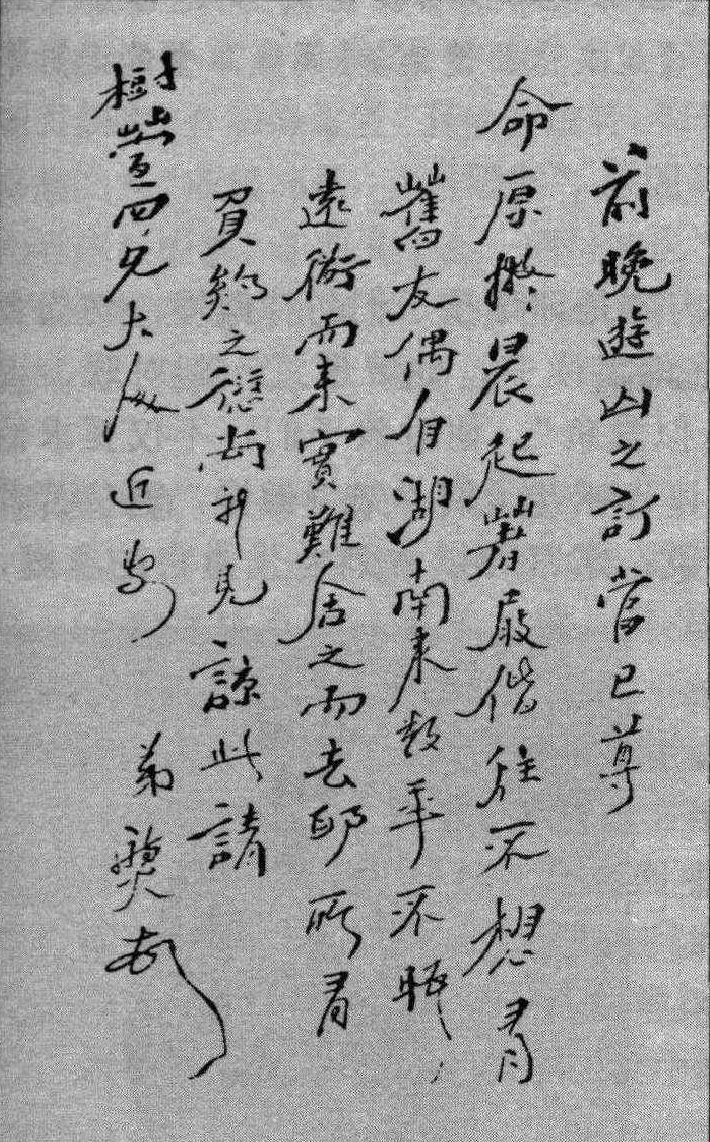 前晚遊山之訂當已尊
命原擬晨起著屐偕往不想有
舊友偶自湖南來数年不晤
遠衜而來實難舍之而去所有
負約之愆尚祈見諒此請
樹萱四兄大人近安
弟頓